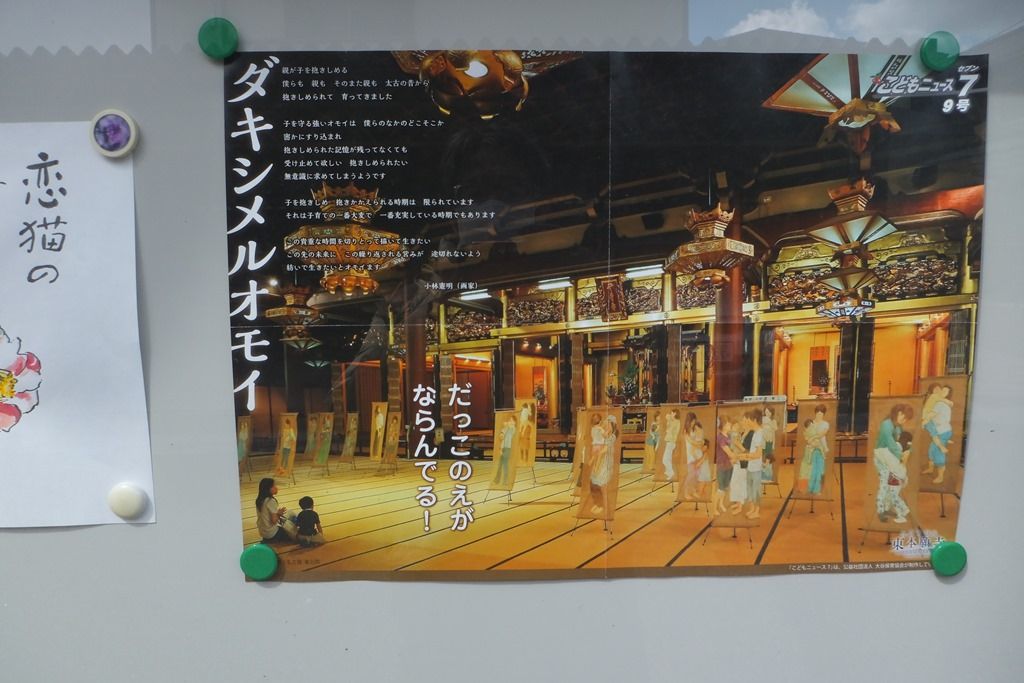 恋猫の
ダキシメルオモイ
親が子を抱きしめる
僕らも 親も そのまた親も 太古の昔から
抱きしめられて 育ってきました
子を守る強いオモイは 僕らのなかのどこそこか
密かにすり込まれ
抱きしめられた記憶が残ってなくても
受け止めて欲しい 抱きしめられたい
無意識に求めてしまうようです
子を抱きしめ 抱きかかえられる時期は 限られています
それは子育ての一番大変で 一番充実している時期でもあります
この貴重な時間を切りとって描いて生きたい
この先の未来に この繰り返される営みが 途切れないよう
紡いで生きたいとオモイます
小林憲明（画家）
こどもニュース7
セブン
9号
だっこのえが
ならんでる！
東本願寺
「こどもニュース7」は、公益社団法人 大谷保育協会が制作してい